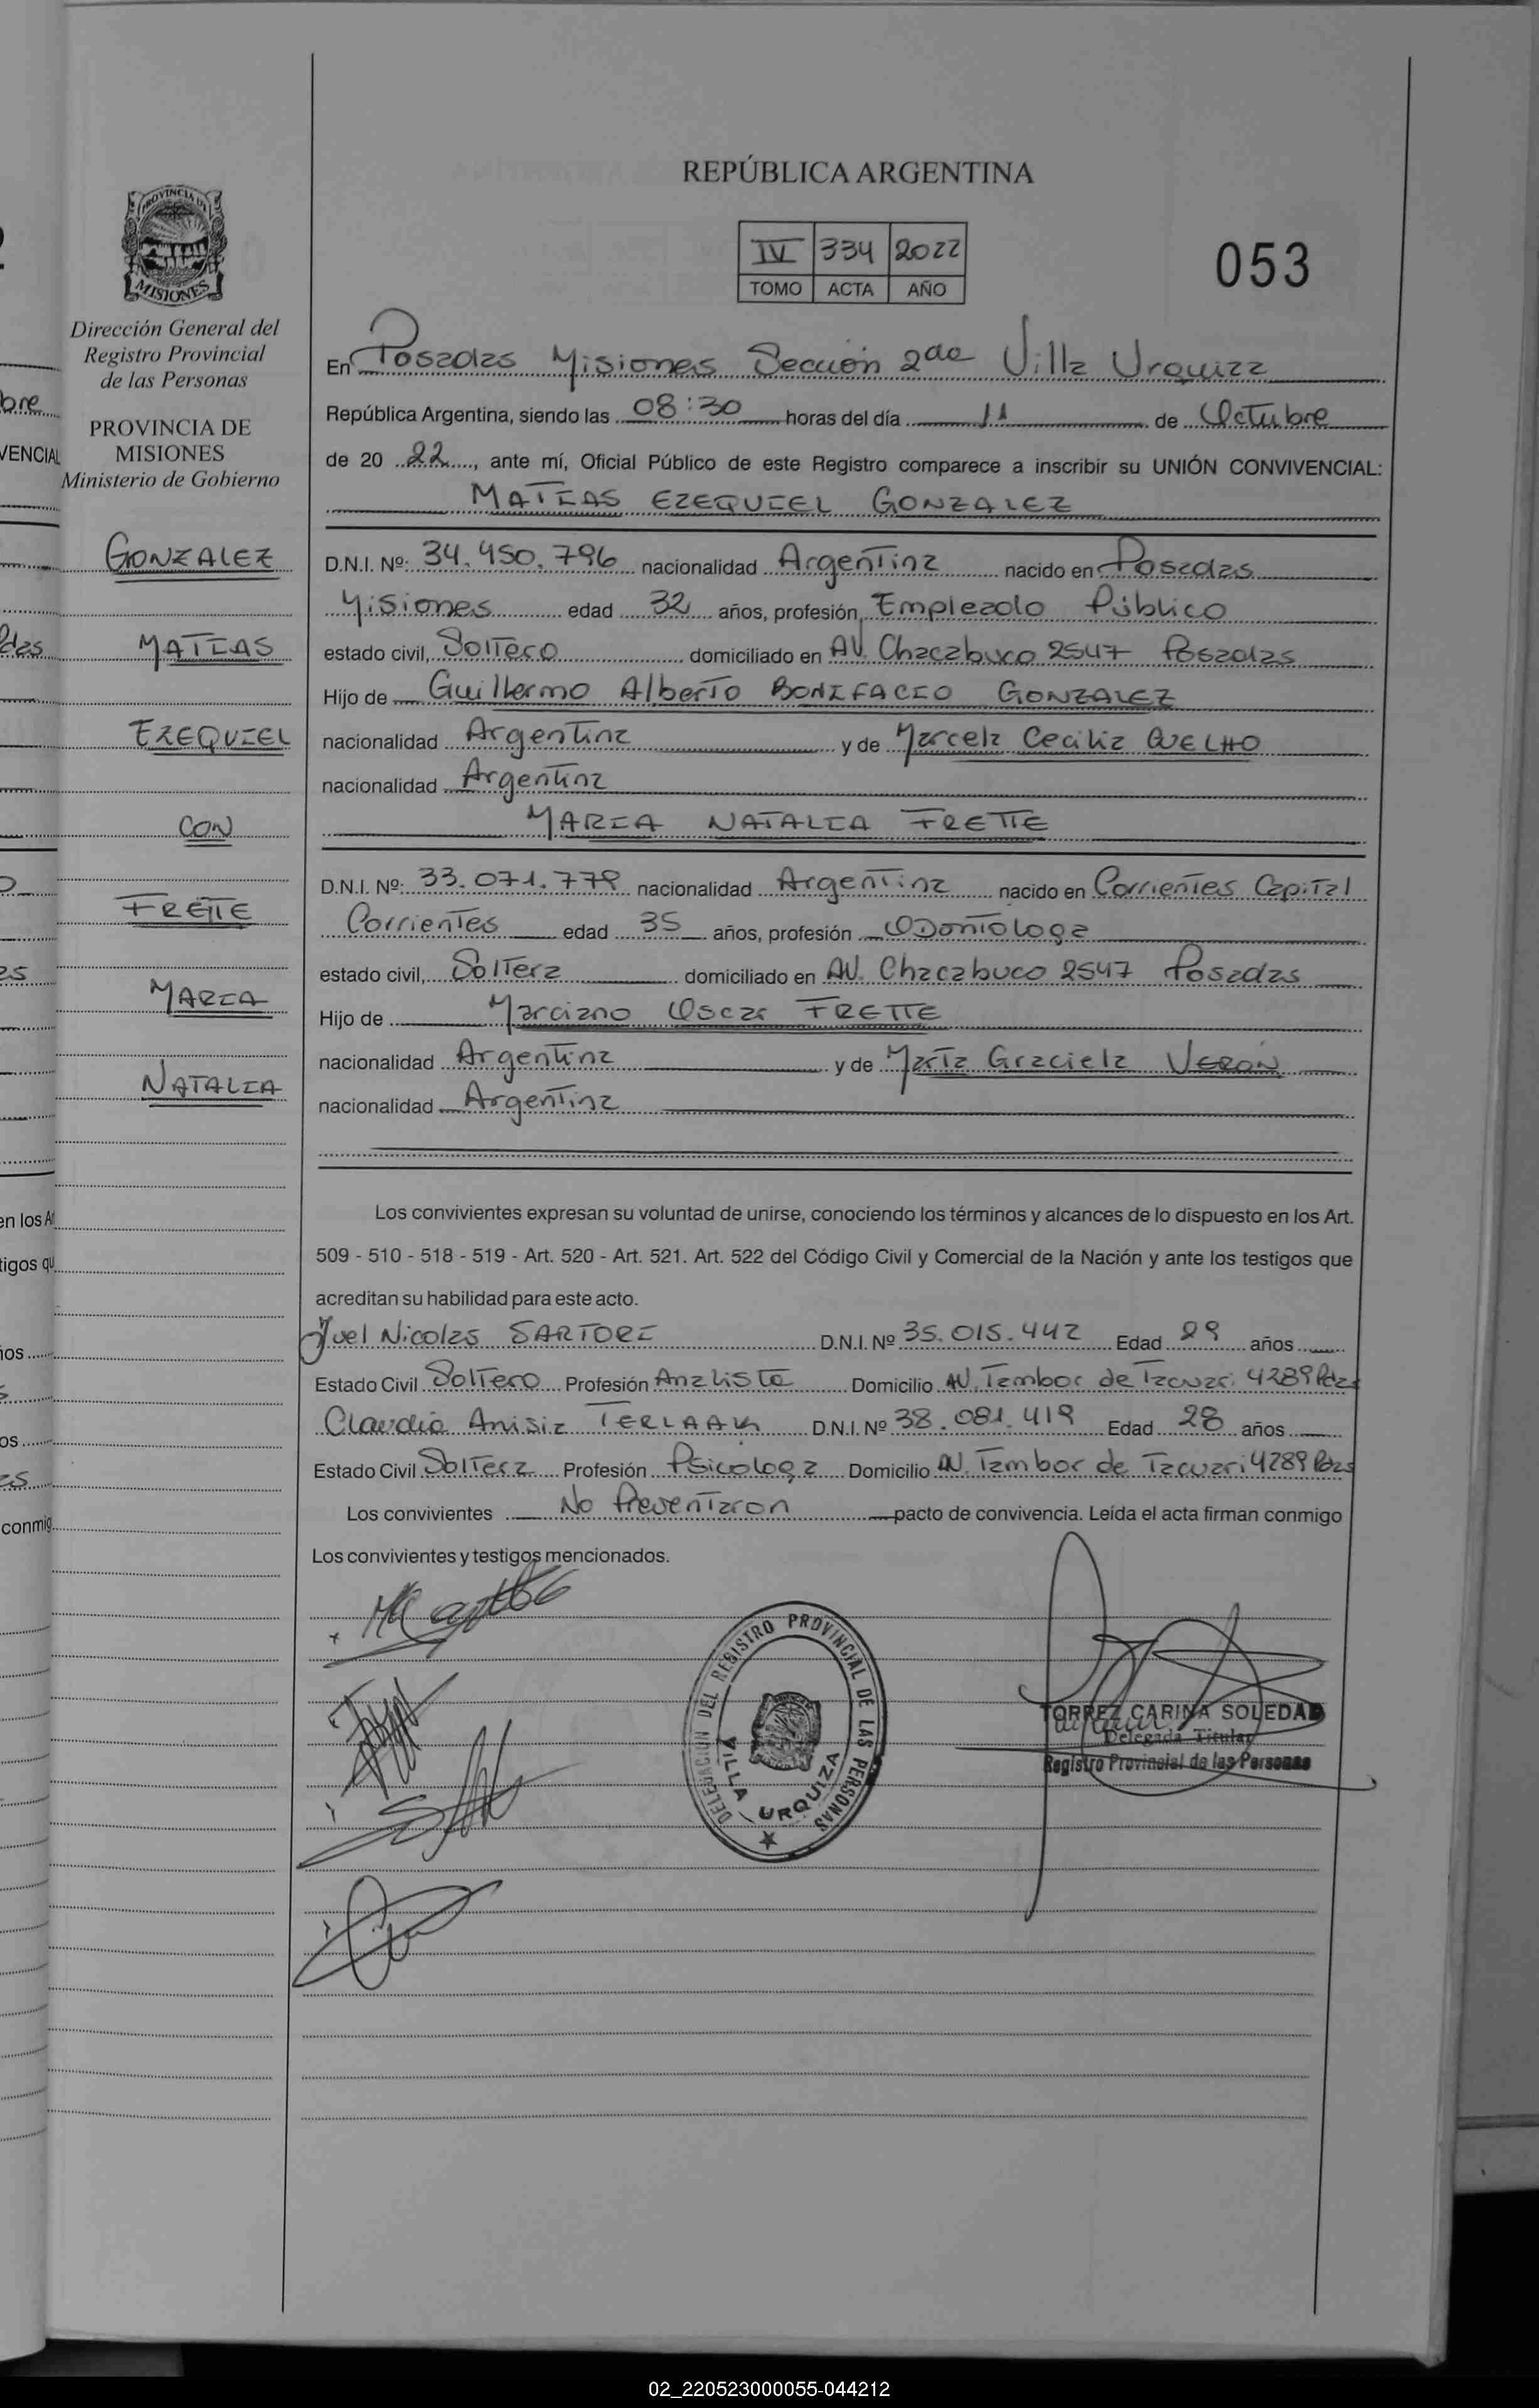 REPÚBLICA ARGENTINA
IV 334 2022
TOMO ACTA AÑO
053
PROVINCIA DE
MISIONES
Dirección General del
Registro Provincial
de las Personas
PROVINCIA DE
MISIONES
Ministerio de Gobierno
GONZALEZ
MATIAS
EZEQUIEL
CON
FRETTE
MARIA
NATALIA
En Posadas Misiones Sección 2da Villa Urquiza
República Argentina, siendo las 08:30 horas del día 11 de Octubre
de 20 22, ante mí, Oficial Público de este Registro comparece a inscribir su UNIÓN CONVIVENCIAL:
MATIAS EZEQUIEL GONZALEZ
D.N.I. Nº: 34.450.796 nacionalidad Argentina nacido en Posadas
Misiones edad 32 años, profesión, Empleado Público
estado civil, Soltero domiciliado en AV. Chacabuco 2547 Posadas
Hijo de Guillermo Alberto BONIFACIO GONZALEZ
nacionalidad Argentina y de Marcela Cecilia CUELHO
nacionalidad Argentina
MARIA NATALIA FRETTE
D.N.I. Nº: 33.071.778 nacionalidad Argentina nacido en Corrientes Capital
Corrientes edad 35 años, profesión Odontologa
estado civil, Soltera domiciliado en AV. Chacabuco 2547 Posadas
Hijo de Marciano Oscar FRETTE
nacionalidad Argentina y de Marta Graciela VERÓN
nacionalidad Argentina
Los convivientes expresan su voluntad de unirse, conociendo los términos y alcances de lo dispuesto en los Art.
509 - 510 - 518 - 519 - Art. 520 - Art. 521. Art. 522 del Código Civil y Comercial de la Nación y ante los testigos que
acreditan su habilidad para este acto.
Juel Nicolas SARTORI D.N.I. Nº 35.015.442 Edad 29 años
Estado Civil Soltero Profesión Analista Domicilio AV. Tambor de Tacuari 4289 Pdas
Claudia Anisia TERLAAK D.N.I. Nº 38.081.419 Edad 28 años
Estado Civil Soltera Profesión Psicologa Domicilio AV. Tambor de Tacuari 4289 Pdas
Los convivientes No Preventaron pacto de convivencia. Leída el acta firman conmigo
Los convivientes y testigos mencionados.
DELEGACION DEL REGISTRO PROVINCIAL DE LAS PERSONAS
VILLA URQUIZA
TORREZ CARINA SOLEDAD
Delegada Titular
Registro Provincial de las Personas
02_220523000055-044212